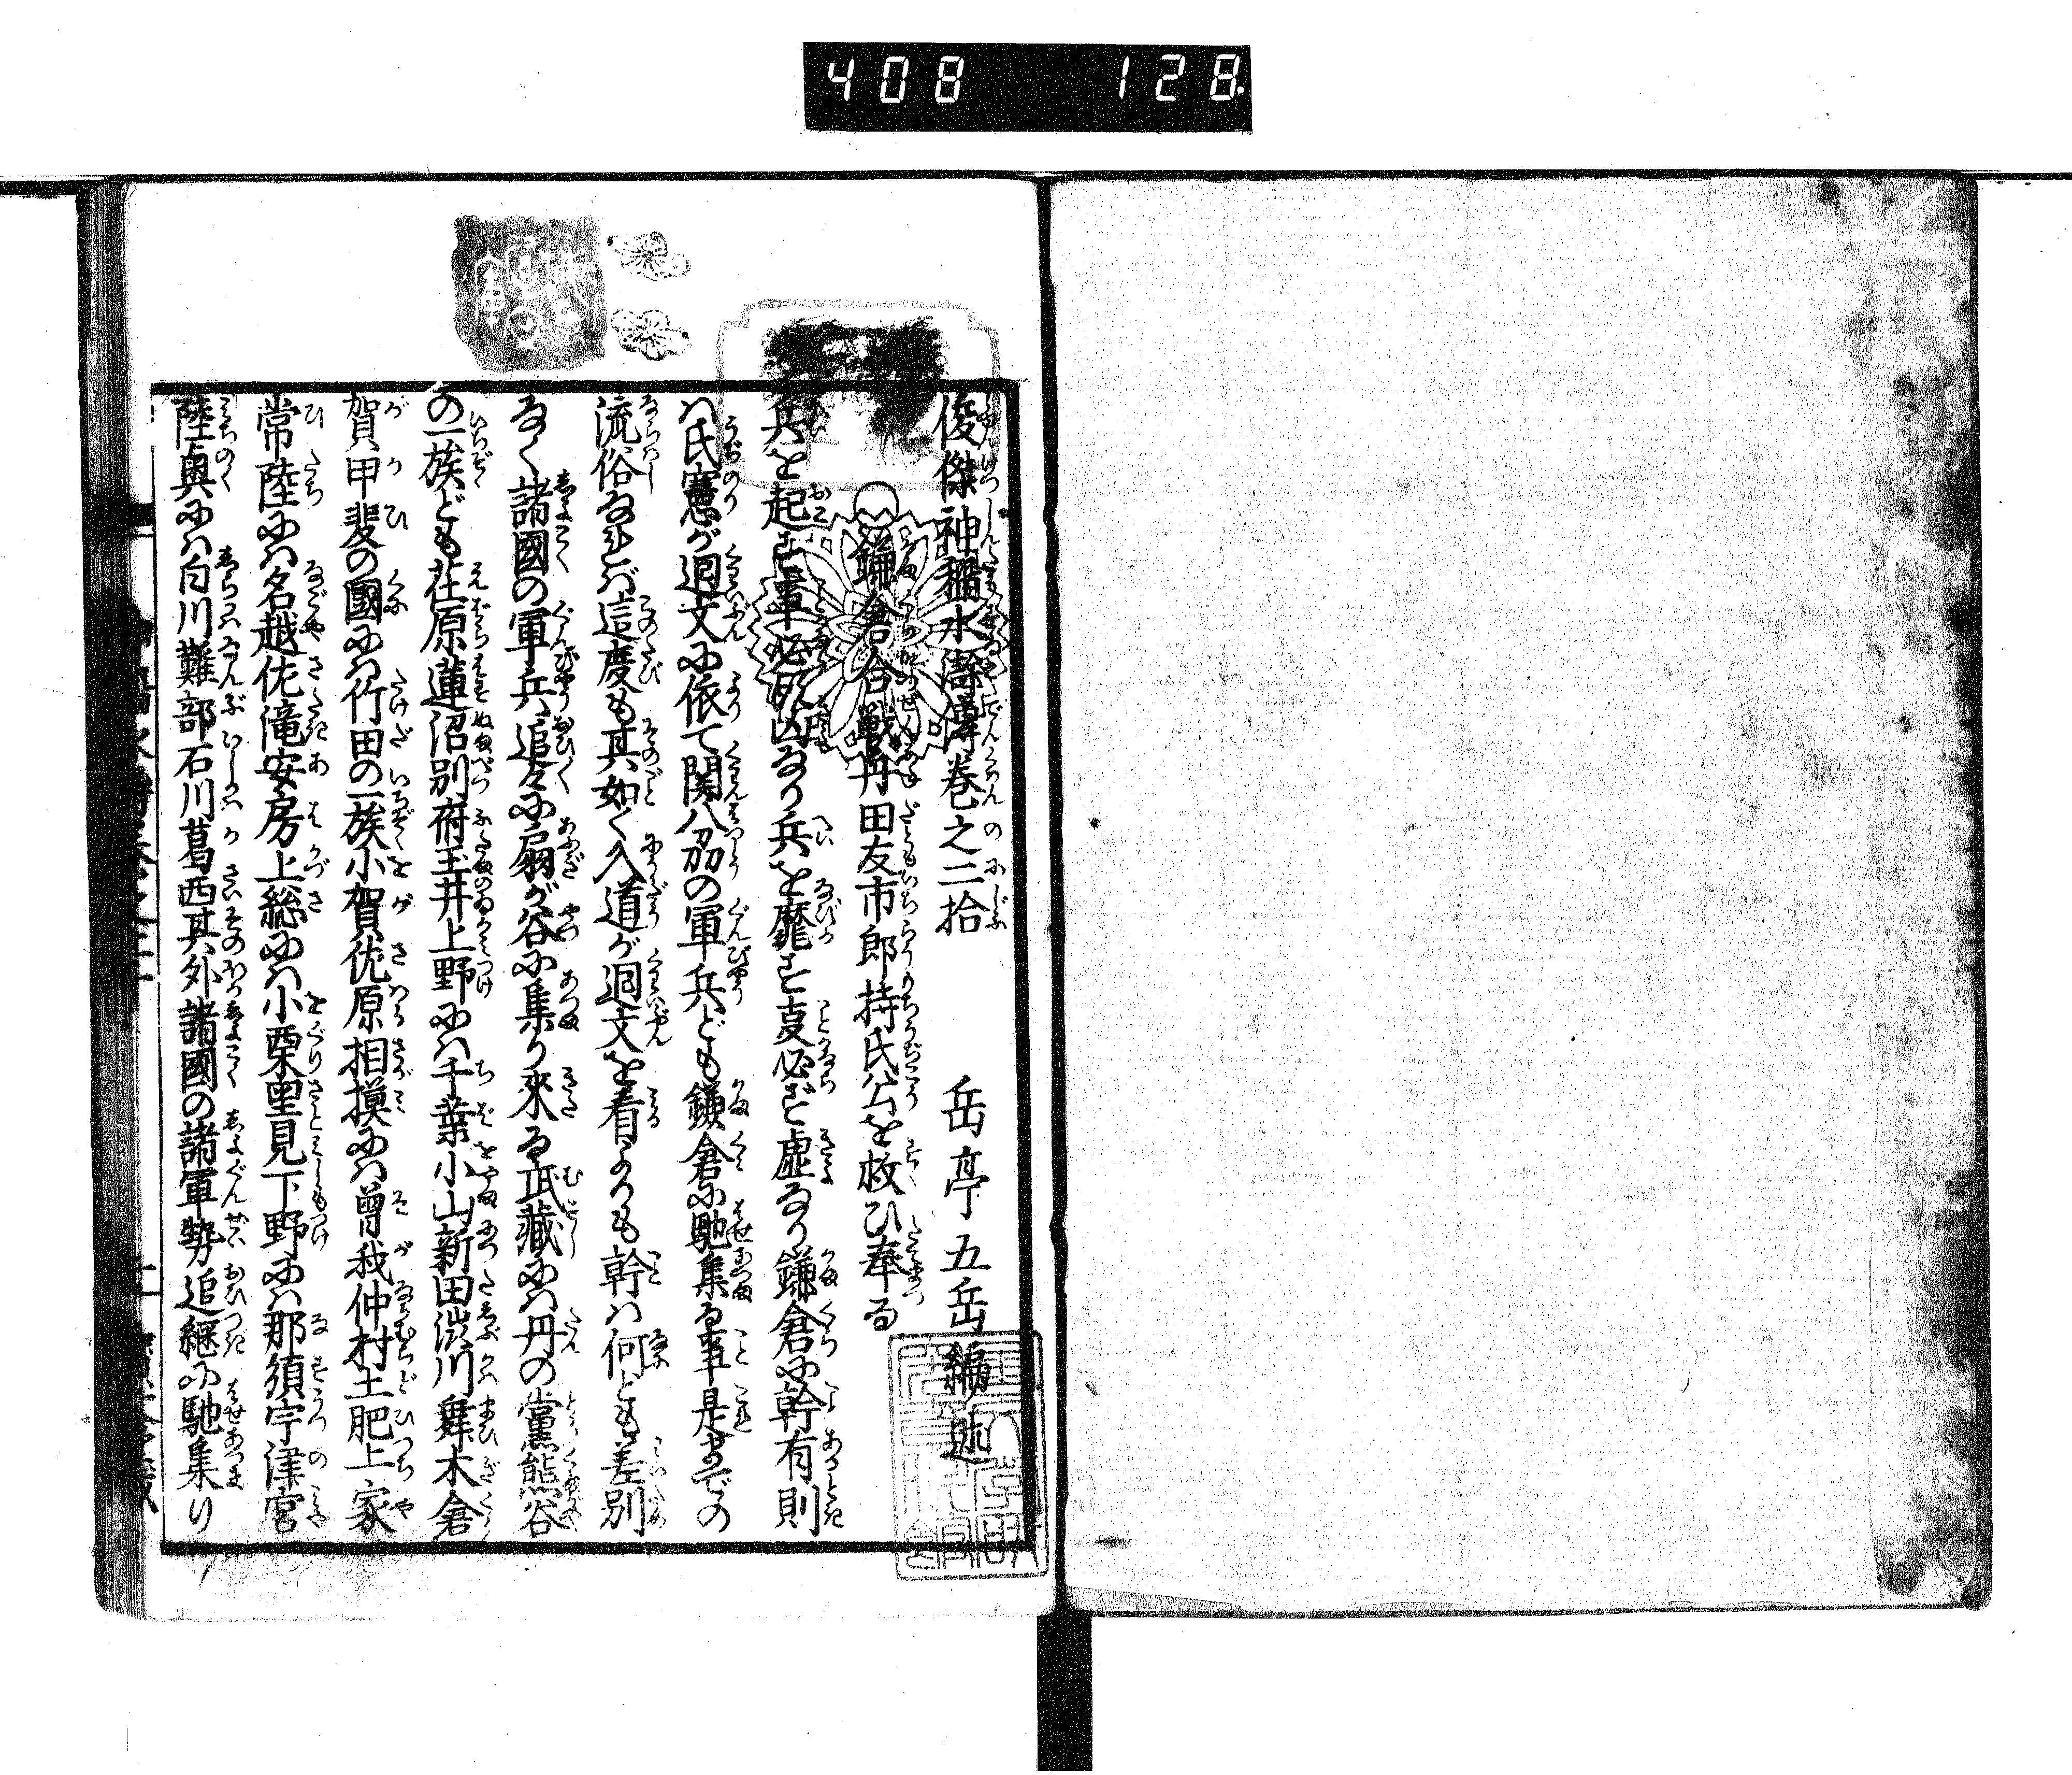 408 128
俊傑神稲水滸傳巻之二拾
岳亭五岳編述
鎌倉合戦丹田友市郎持氏公を救ひ奉る
兵を起す事必ず凶なり兵を靡す事必ず虚なり鎌倉に幹有則
ハ氏憲が廻文に依て関八刕の軍兵ども鎌倉に馳集る事是までの
流俗なれバ這度も其如く入道が廻文を看よりも幹ハ何とも差別
なく諸國の軍兵追々に扇が谷に集り來る武藏にハ丹の黨熊谷
の一族ども荏原蓮沼別府玉井上野にハ千葉小山新田渋川舞木倉
賀甲斐の國にハ竹田の一族小賀佐原相摸にハ曽我仲村土肥土家
常陸にハ名越佐滝安房上総にハ小栗里見下野にハ那須宇津宮
陸奥にハ白川難部石川葛西其外諸國の諸軍勢追継に馳集り